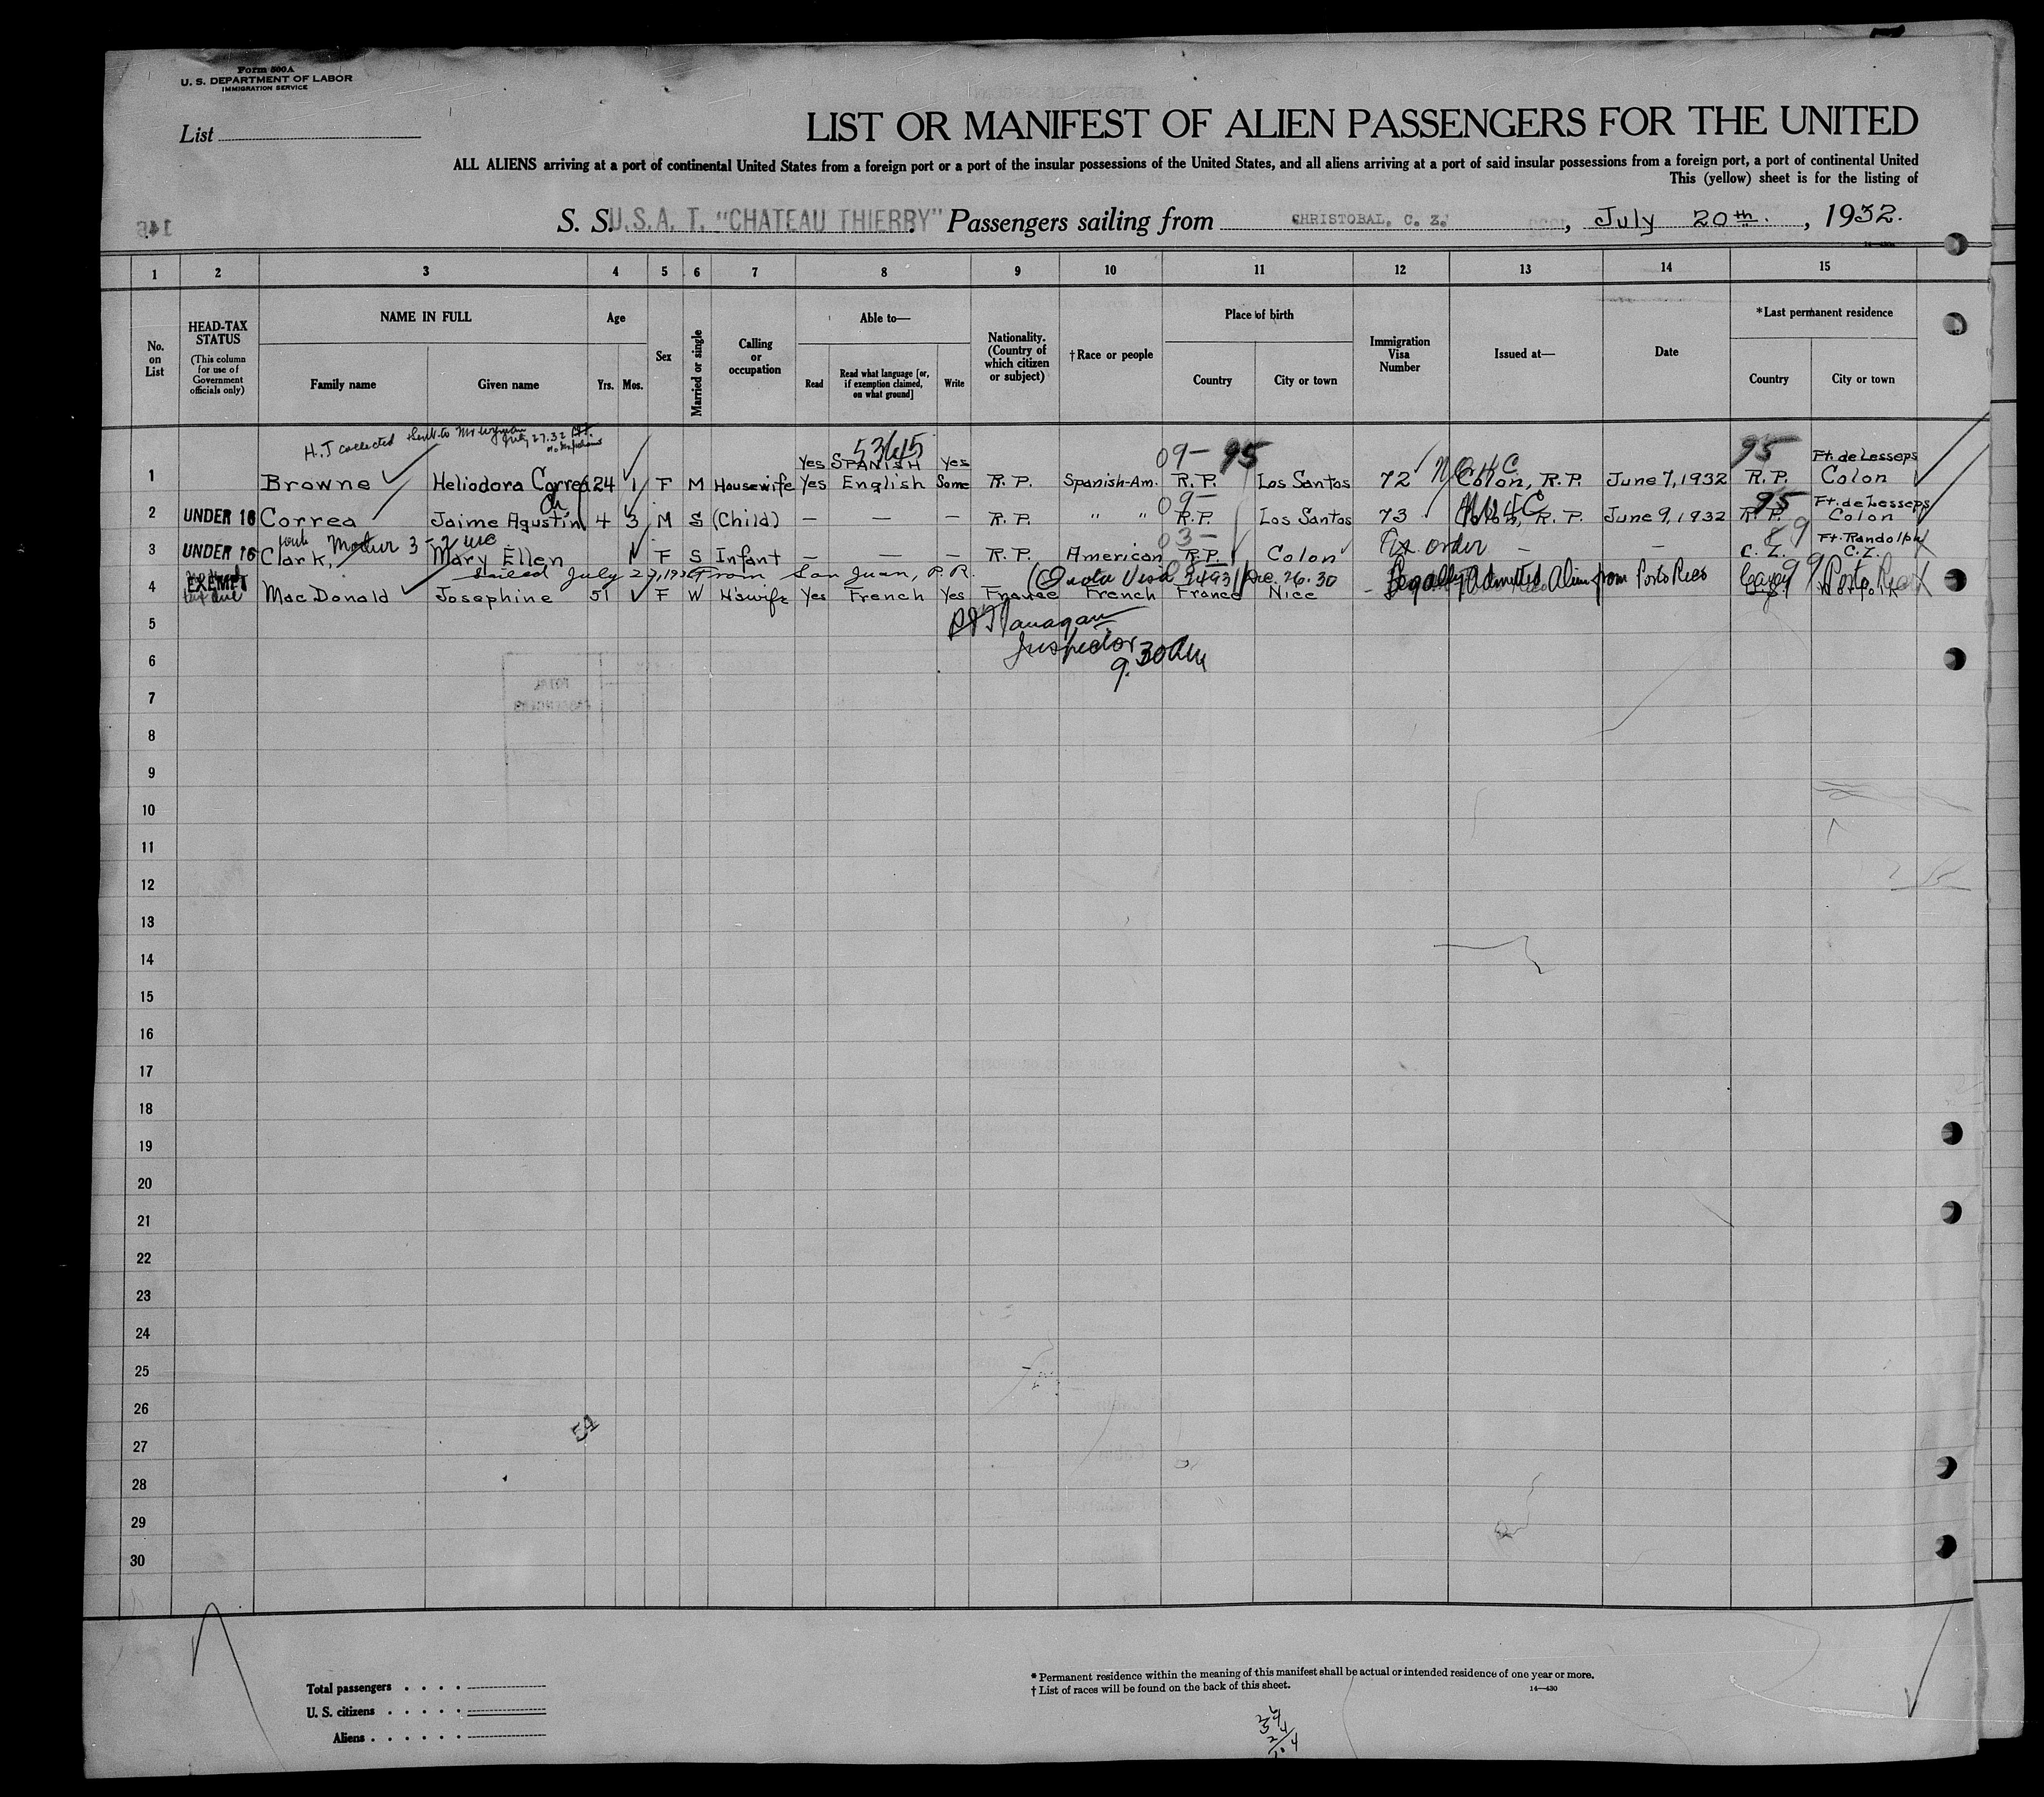 Form 500A
U. S. DEPARTMENT OF LABOR
IMMIGRATION SERVICE
List
LIST OR MANIFEST OF ALIEN PASSENGERS FOR THE UNITED
ALL ALIENS arriving at a port of continental United States from a foreign port or a port of the insular possessions of the United States, and all aliens arriving at a port of said insular possessions from a foreign port, a port of continental United
This (yellow) sheet is for the listing of
S. S. U.S.A. T. "CHATEAU THIERRY" Passengers sailing from CHRISTOBAL, C. Z. , July 20th. , 1932.
1 2 3 4 5 6 7 8 9 10 11 12 13 14 15
No. on List
HEAD-TAX STATUS
(This column for use of Government officials only)
NAME IN FULL
Family name Given name
Age
Yrs. Mos.
Sex
Married or single
Calling or occupation
Able to—
Read Read what language [or, if exemption claimed, on what ground] Write
Nationality. (Country of which citizen or subject)
†Race or people
Place of birth
Country City or town
Immigration Visa Number
Issued at—
Date
*Last permanent residence
Country City or town
H.T collected July 27.32
53645
09- 95 95
Yes SPANISH Yes Ft. de Lesseps
1 Browne Heliodora Correa 24 1 F M Housewife Yes English Some R. P. Spanish-Am. R. P. Los Santos 72 Colon, R. P. June 7, 1932 R. P. Colon
09- 95 Ft. de Lesseps
2 UNDER 16 Correa Jaime Agustin 4 3 M S (Child) — — — R. P. " " R.P. Los Santos 73 Colon, R. P. June 9, 1932 R. P. Colon
Mother 3- 03- 89 Ft. Randolph
3 UNDER 16 Clark, Mary Ellen 1 F S Infant — — — R. P. American R.P. Colon Ex. order — — C. Z. C. Z.
Sailed July 27, 1932 From San Juan, P. R. (Quota Visa Dec. 26. 30 Legally Admitted Alien from Porto Rico 99 Porto Rico
4 EXEMPT MacDonald Josephine 51 F W H'swife Yes French Yes France French France Nice Norfolk
5 Flanagan
6 Inspector
9.30 AM
7
8
9
10
11
12
13
14
15
16
17
18
19
20
21
22
23
24
25
26
27
28
29
30
Total passengers . . . .
U. S. citizens . . . . .
Aliens . . . . . .
* Permanent residence within the meaning of this manifest shall be actual or intended residence of one year or more.
† List of races will be found on the back of this sheet.
14—430